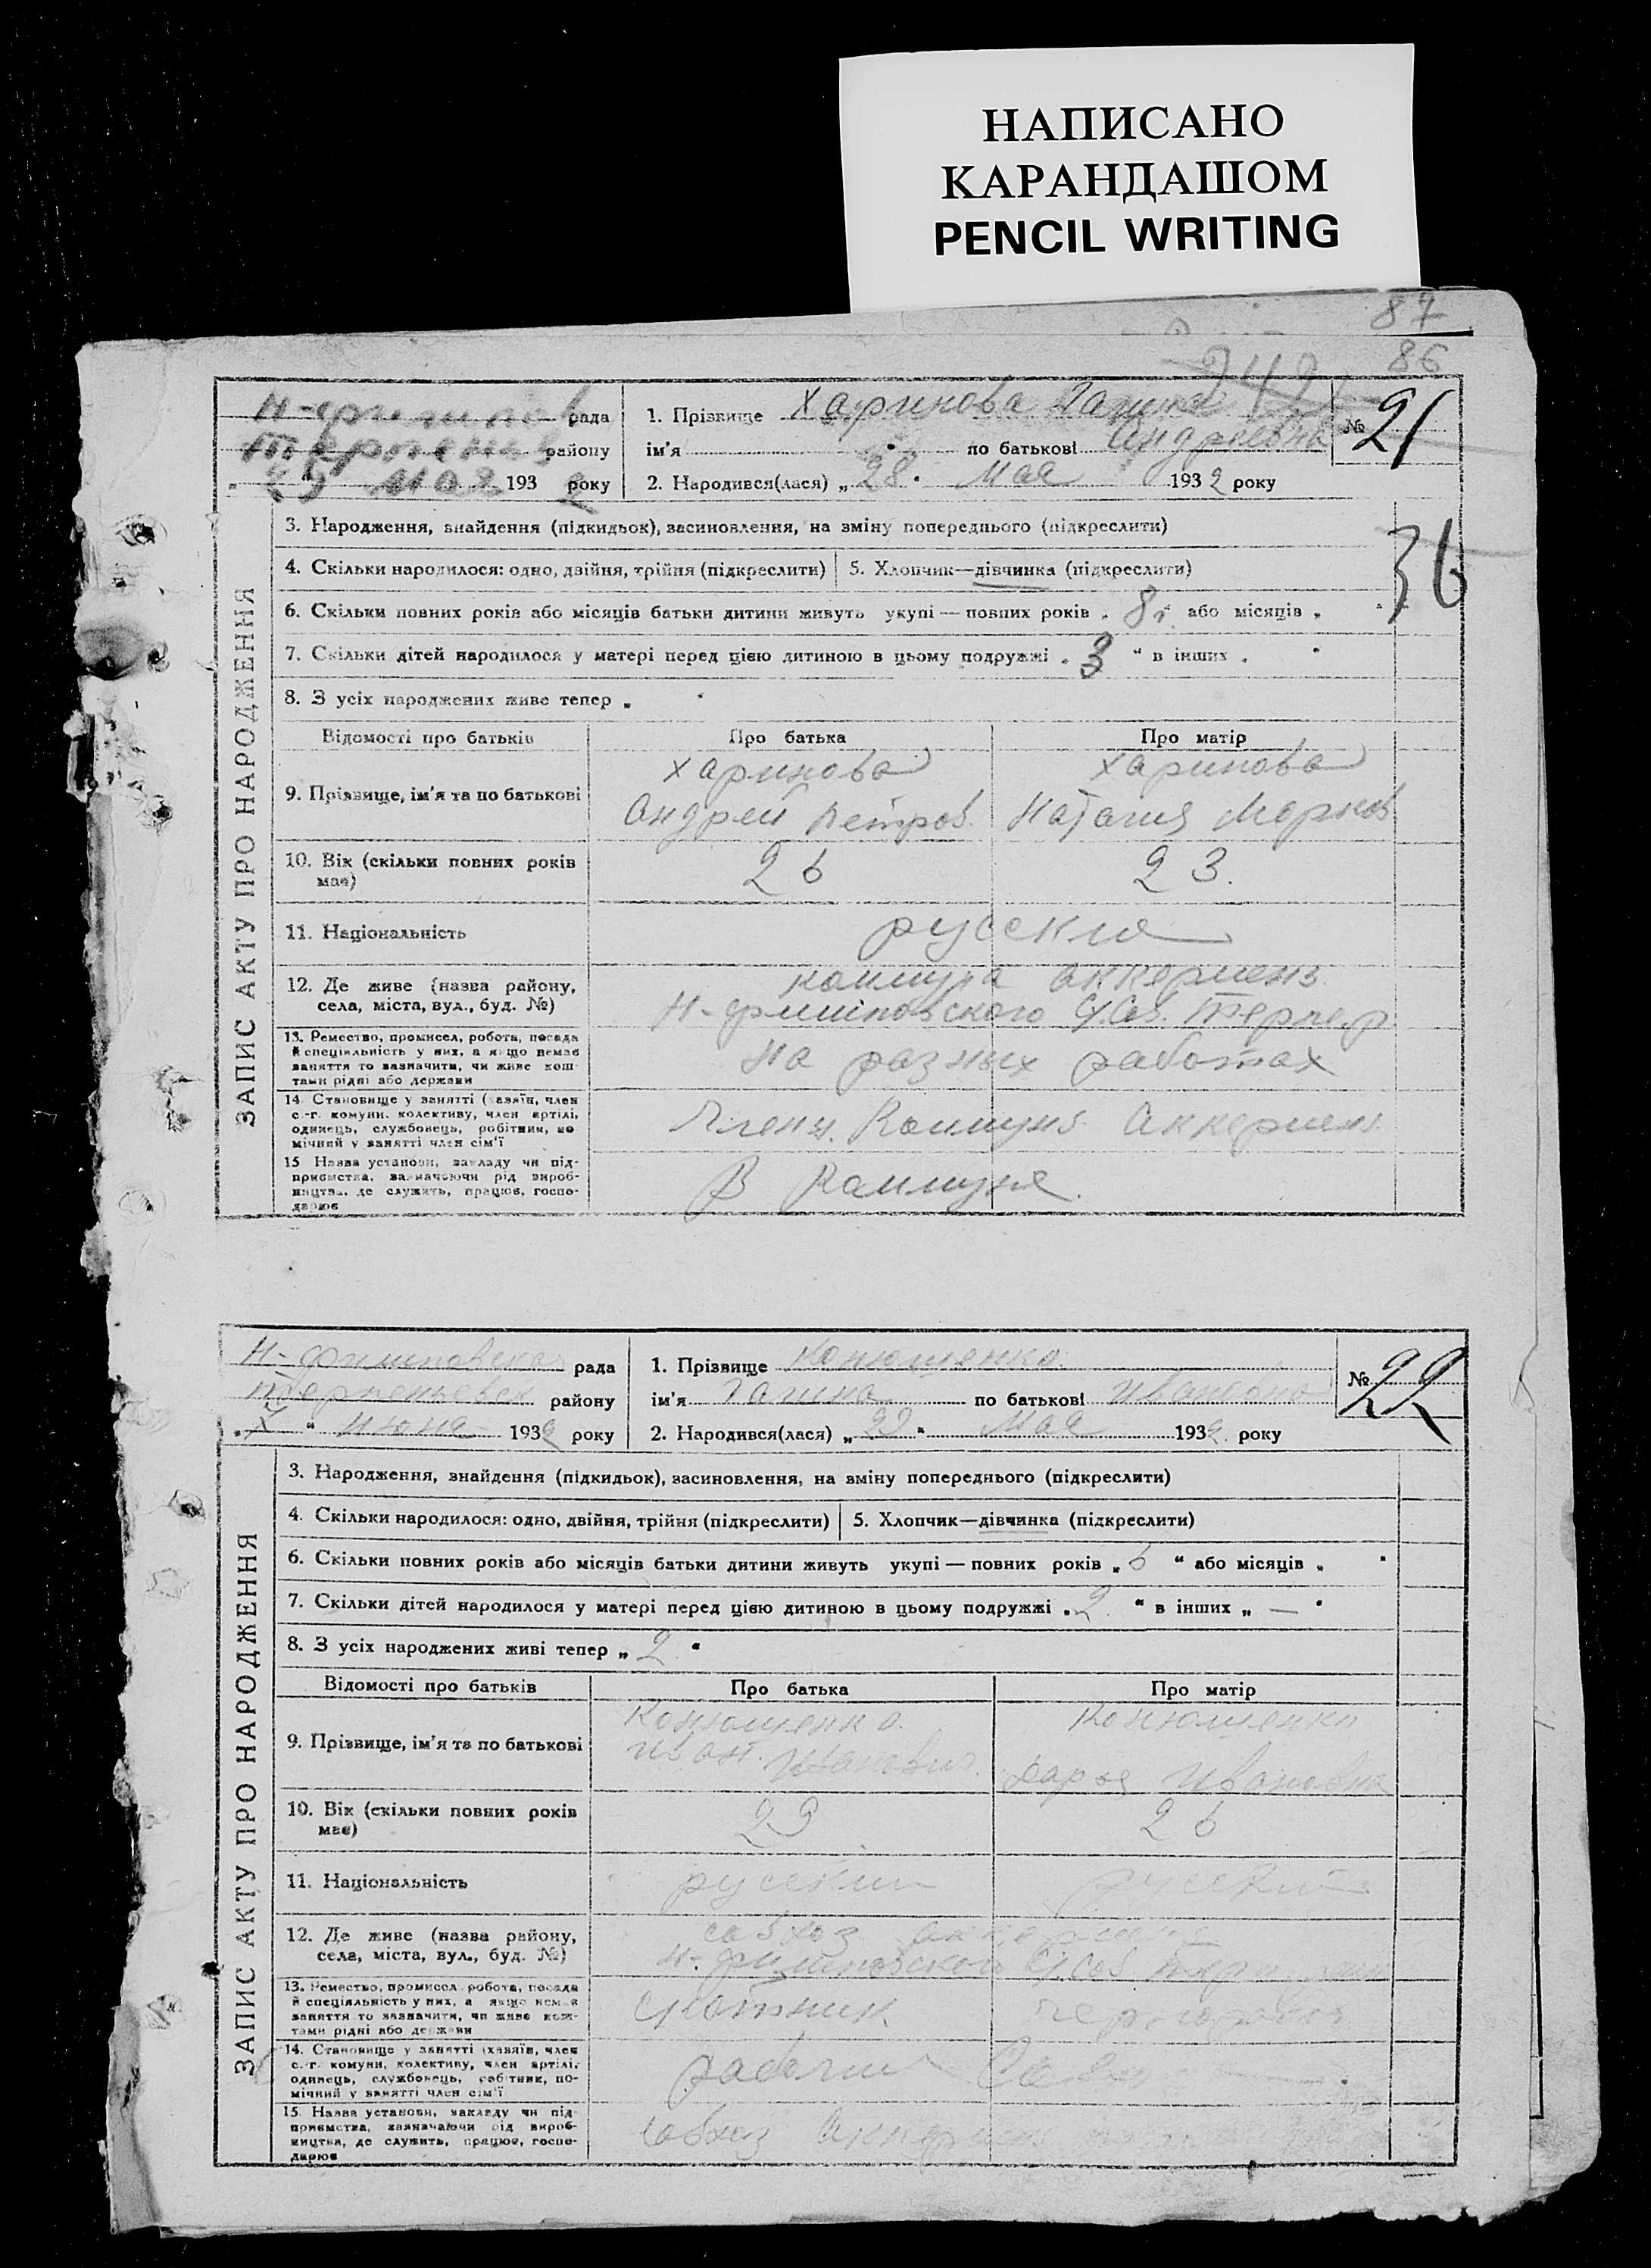 НАПИСАНО
КАРАНДАШОМ
PENCIL WRITING
87
86
рада
району
193 2 року
1. Прізвище Харинова Галина
ім'я по батькові Андреевна
2. Народився(лася) „28" Мая 1932 року
№ 21
ЗАПИС АКТУ ПРО НАРОДЖЕННЯ
3. Народження, знайдення (підкидьок), засиновлення, на зміну попереднього (підкреслити)
36
4. Скільки народилося: одно, двійня, трійня (підкреслити) 5. Хлопчик—дівчинка (підкреслити)
6. Скільки повних років або місяців батьки дитини живуть укупі — повних років „8" або місяців „ "
7. Скільки дітей народилося у матері перед цією дитиною в цьому подружжі „3" в інших „ "
8. З усіх народжених живе тепер „ "
Відомості про батьків Про батька Про матір
Харинова Харинова
9. Прізвище, ім'я та по батькові
Андрей Петров. Наталия Марков
10. Вік (скільки повних років має) 26 23.
11. Національність русские
12. Де живе (назва району, коммуна Аккермень
села, міста, вул., буд. №) С/Сов.
13. Ремество, промисел, робота, посада
й спеціяльність у них, а якщо немає На разных работах
заняття то зазначити, чи живе кош-
тами рідні або держави
14. Становище у занятті (хазяїн, член
с.-г. комуни, колективу, член артілі,
одинець, службовець, робітник, по- Члены Коммуны Аккермень
мічний у занятті член сім'ї
15 Назва установи, закладу чи під-
приємства, зазначаючи рід вироб- В Коммуне.
ництва, де служить, працює, госпо-
дарює
рада
району
„7" июня 1932 року
1. Прізвище Конюшенко
ім'я Галина по батькові Ивановна
2. Народився(лася) „ " Мая 1932 року
№ 22
ЗАПИС АКТУ ПРО НАРОДЖЕННЯ
3. Народження, знайдення (підкидьок), засиновлення, на зміну попереднього (підкреслити)
4. Скільки народилося: одно, двійня, трійня (підкреслити) 5. Хлопчик—дівчинка (підкреслити)
6. Скільки повних років або місяців батьки дитини живуть укупі — повних років „6" або місяців „ "
7. Скільки дітей народилося у матері перед цією дитиною в цьому подружжі „2" в інших „—"
8. З усіх народжених живі тепер „2"
Відомості про батьків Про батька Про матір
Конюшенко Конюшенко
9. Прізвище, ім'я та по батькові
Иван. Иванович Дарья Ивановна
10. Вік (скільки повних років має) 26
11. Національність русский русский
12. Де живе (назва району, совхоз
села, міста, вул., буд. №) С/Сов.
13. Ремество, промисел робота, посада
й спеціяльність у них, а якщо немає скотник
заняття то зазначити, чи живе кош-
тами рідні або держави
14. Становище у занятті (хазяїн, член
с.-г. комуни, колективу, член артілі,
одинець, службовець, робітник, по- рабочий
мічний у занятті член сім'ї
15. Назва установи, закладу чи під-
приємства, зазначаючи рід вироб- совхоз
ництва, де служить, працює, госпо-
дарює